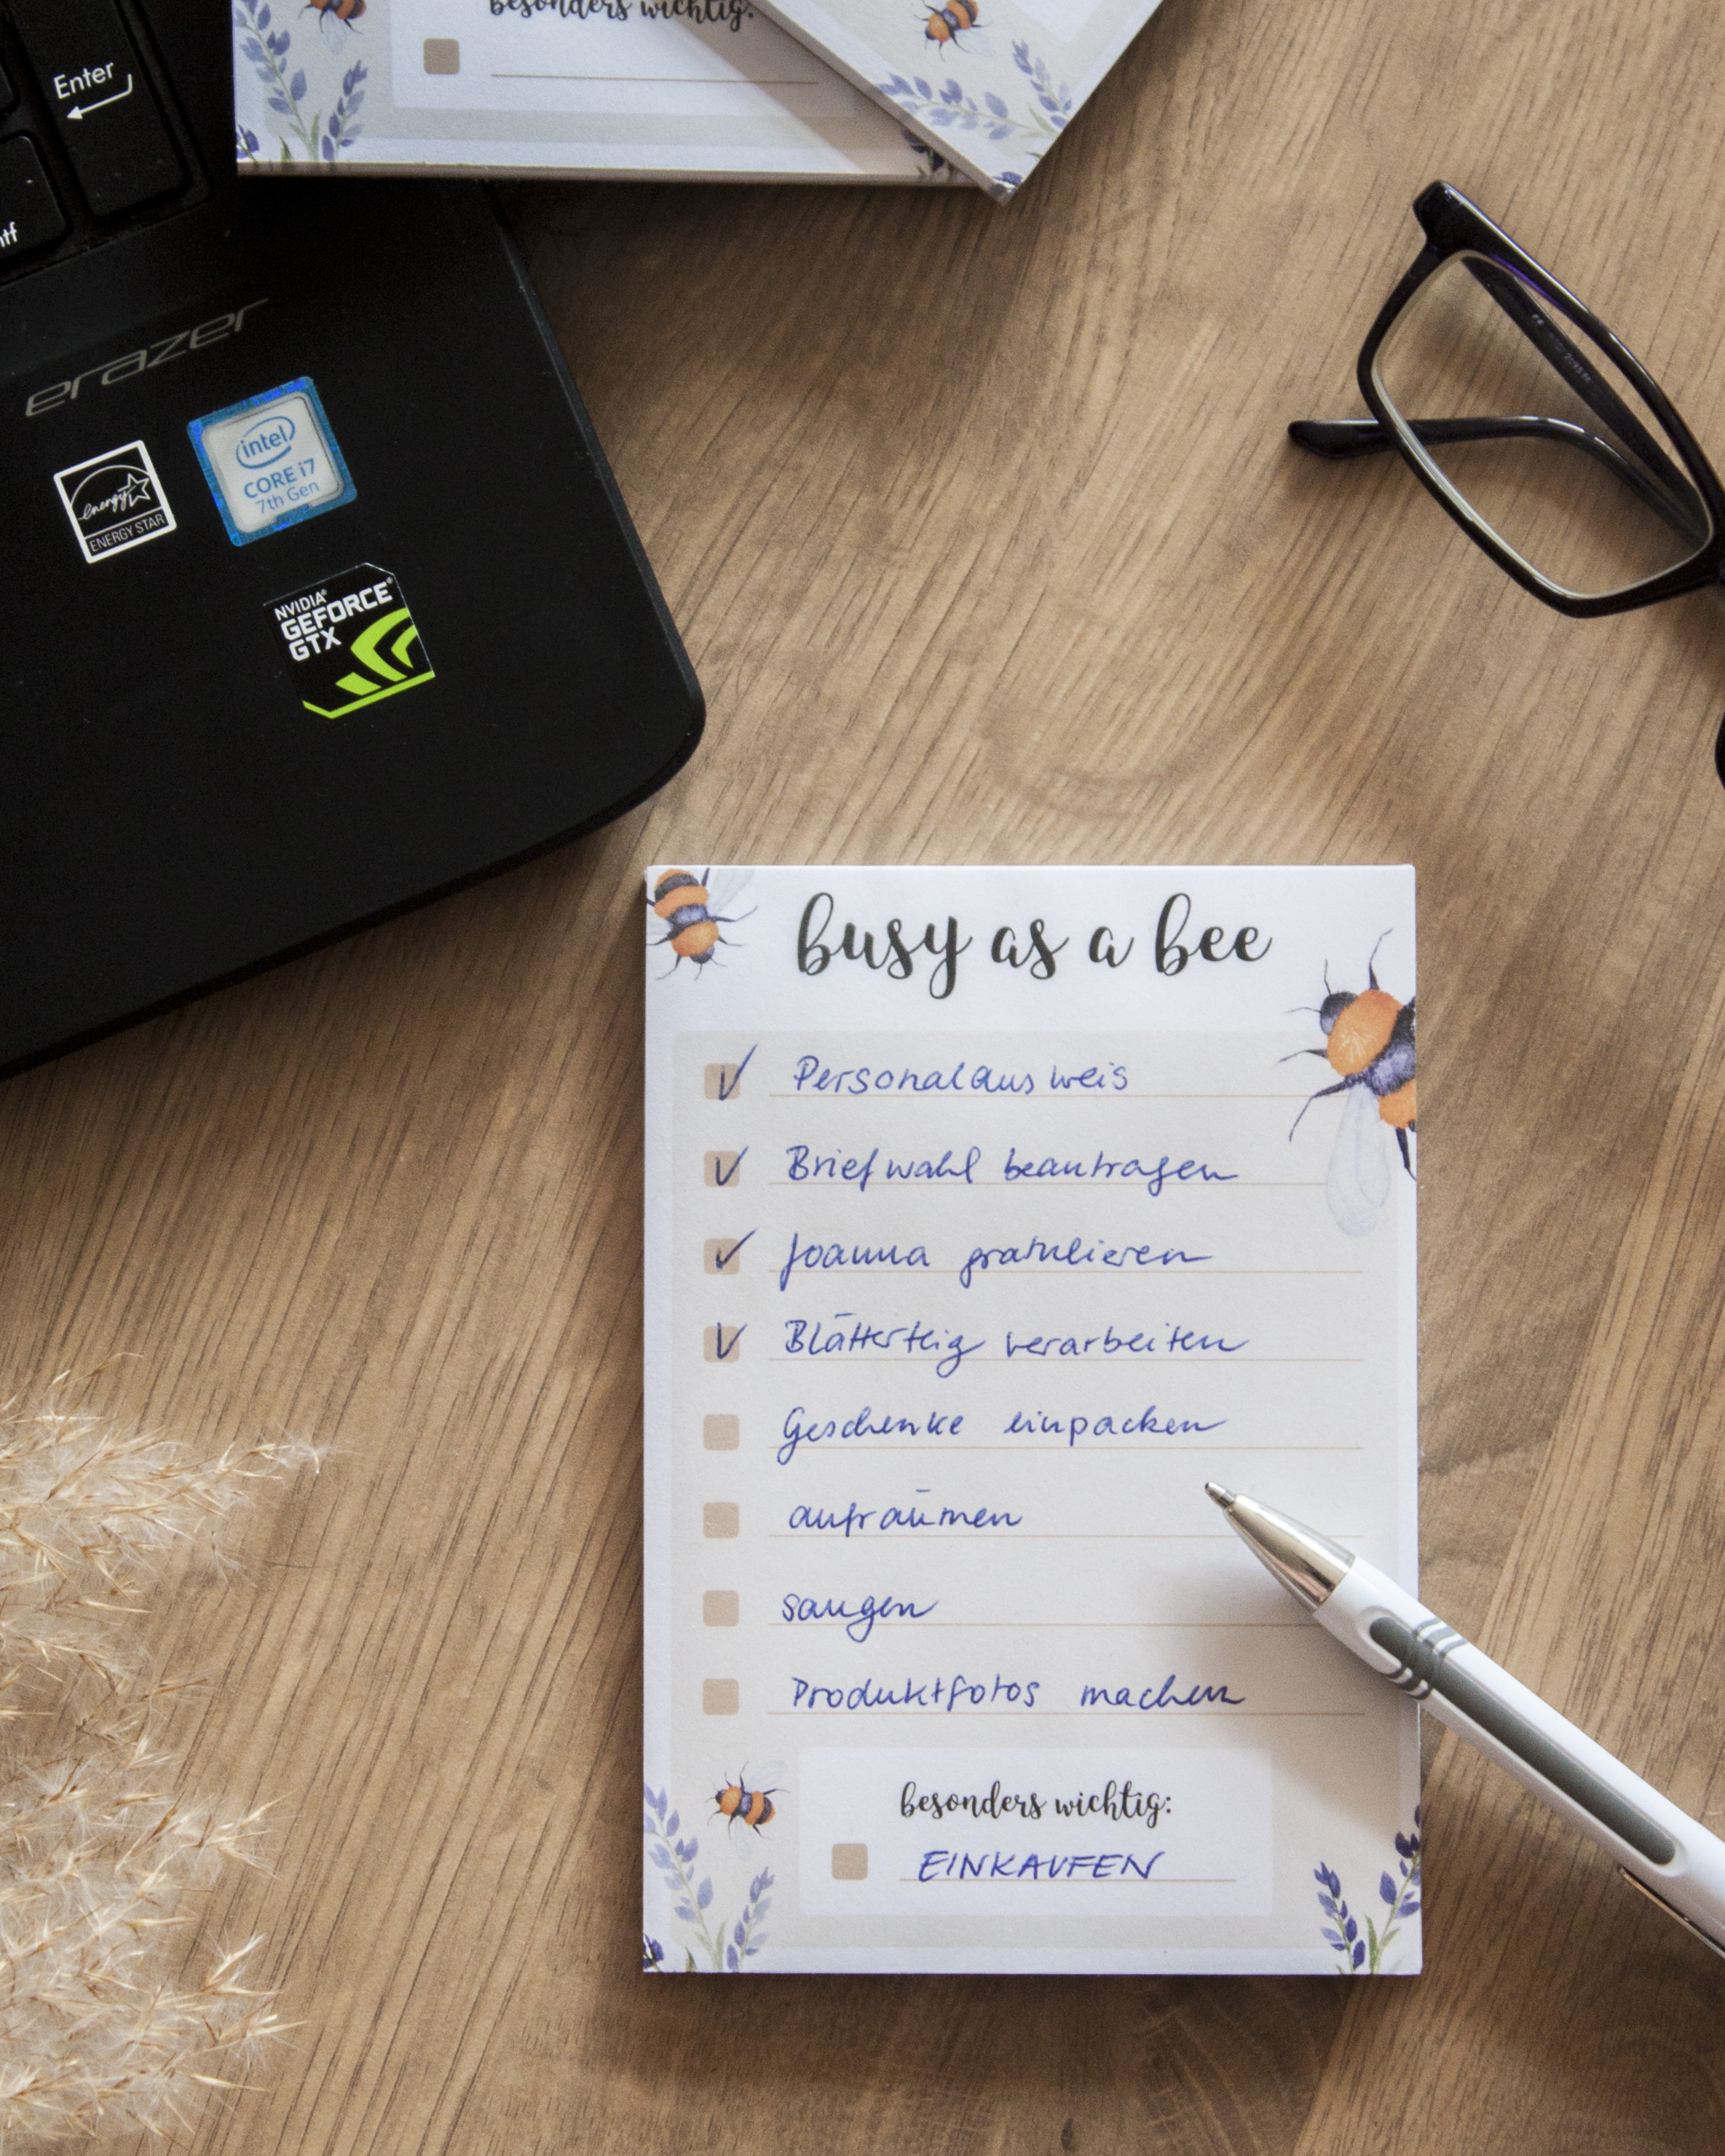 besonders wichtig:
Enter
erazer
intel
CORE i7
7th Gen
energy
ENERGY STAR
NVIDIA
GEFORCE
GTX
busy as a bee
Personalausweis
Briefwahl beantragen
Joanna gratulieren
Blätterteig verarbeiten
Geschenke einpacken
aufräumen
saugen
Produktfotos machen
besonders wichtig:
EINKAUFEN